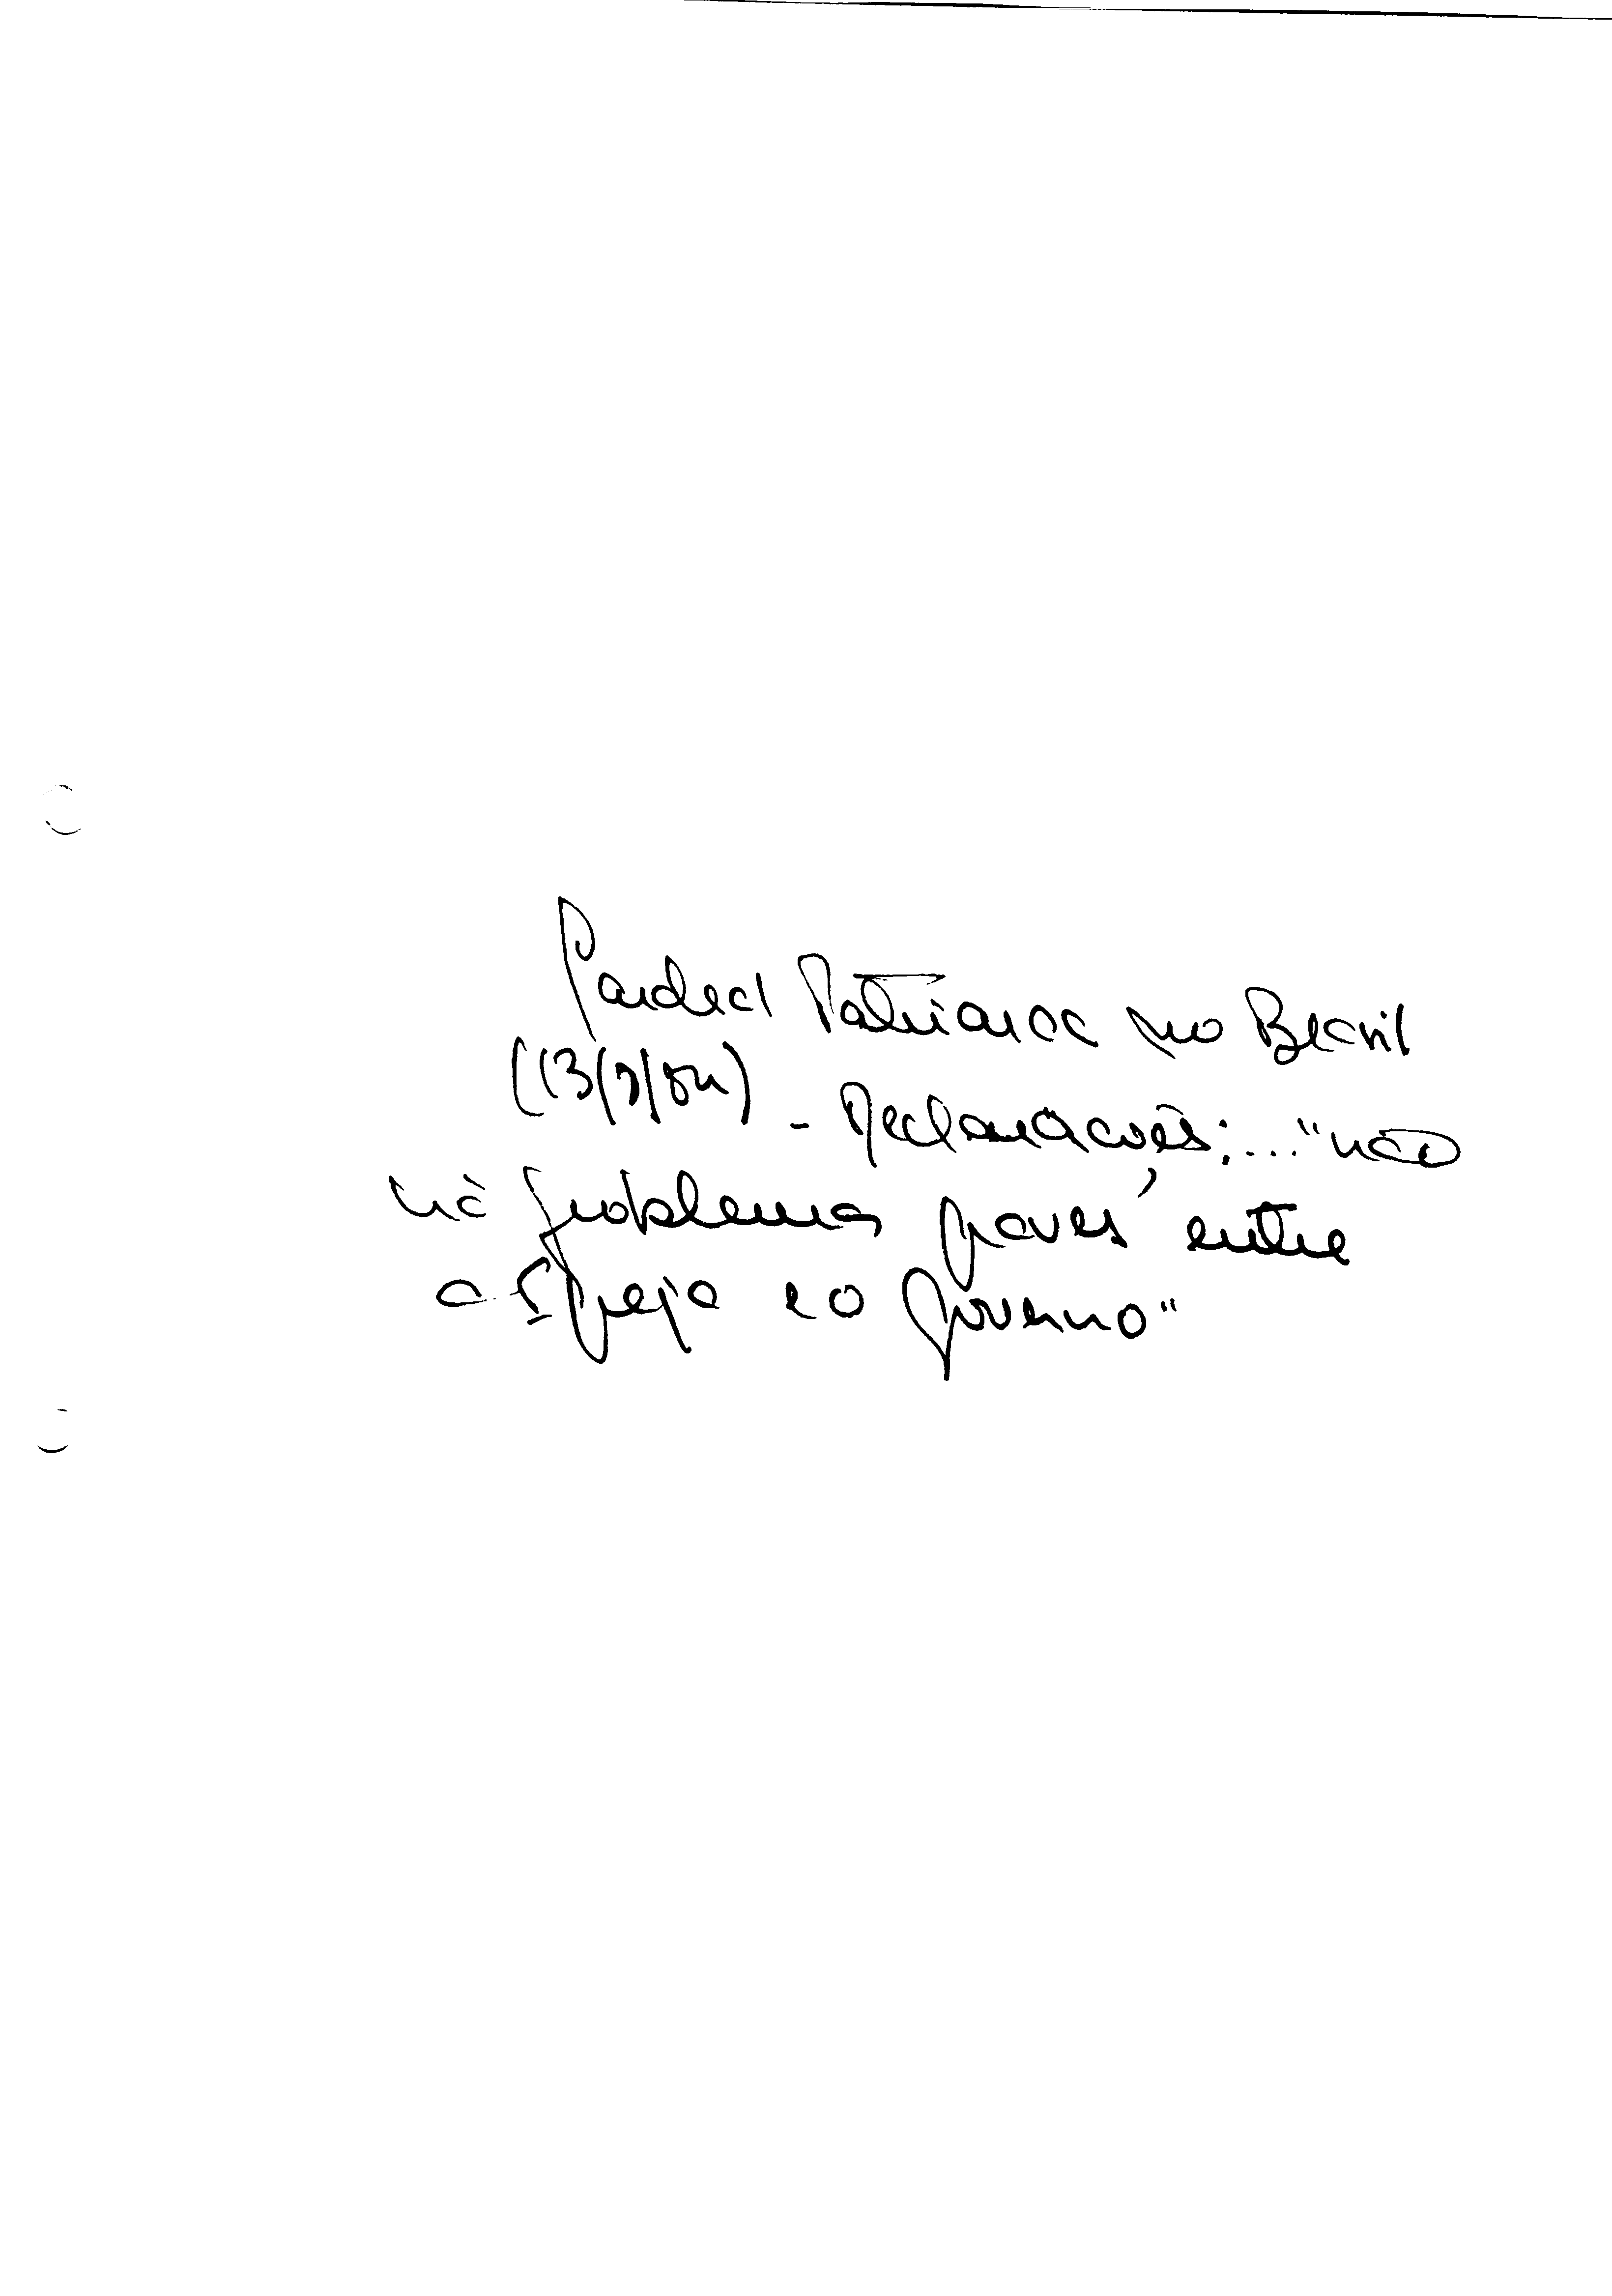 Cardeal Patriarca no Brasil
(13/9/84) - Declarações:... "não
há problemas graves entre
a Igreja e o Governo"